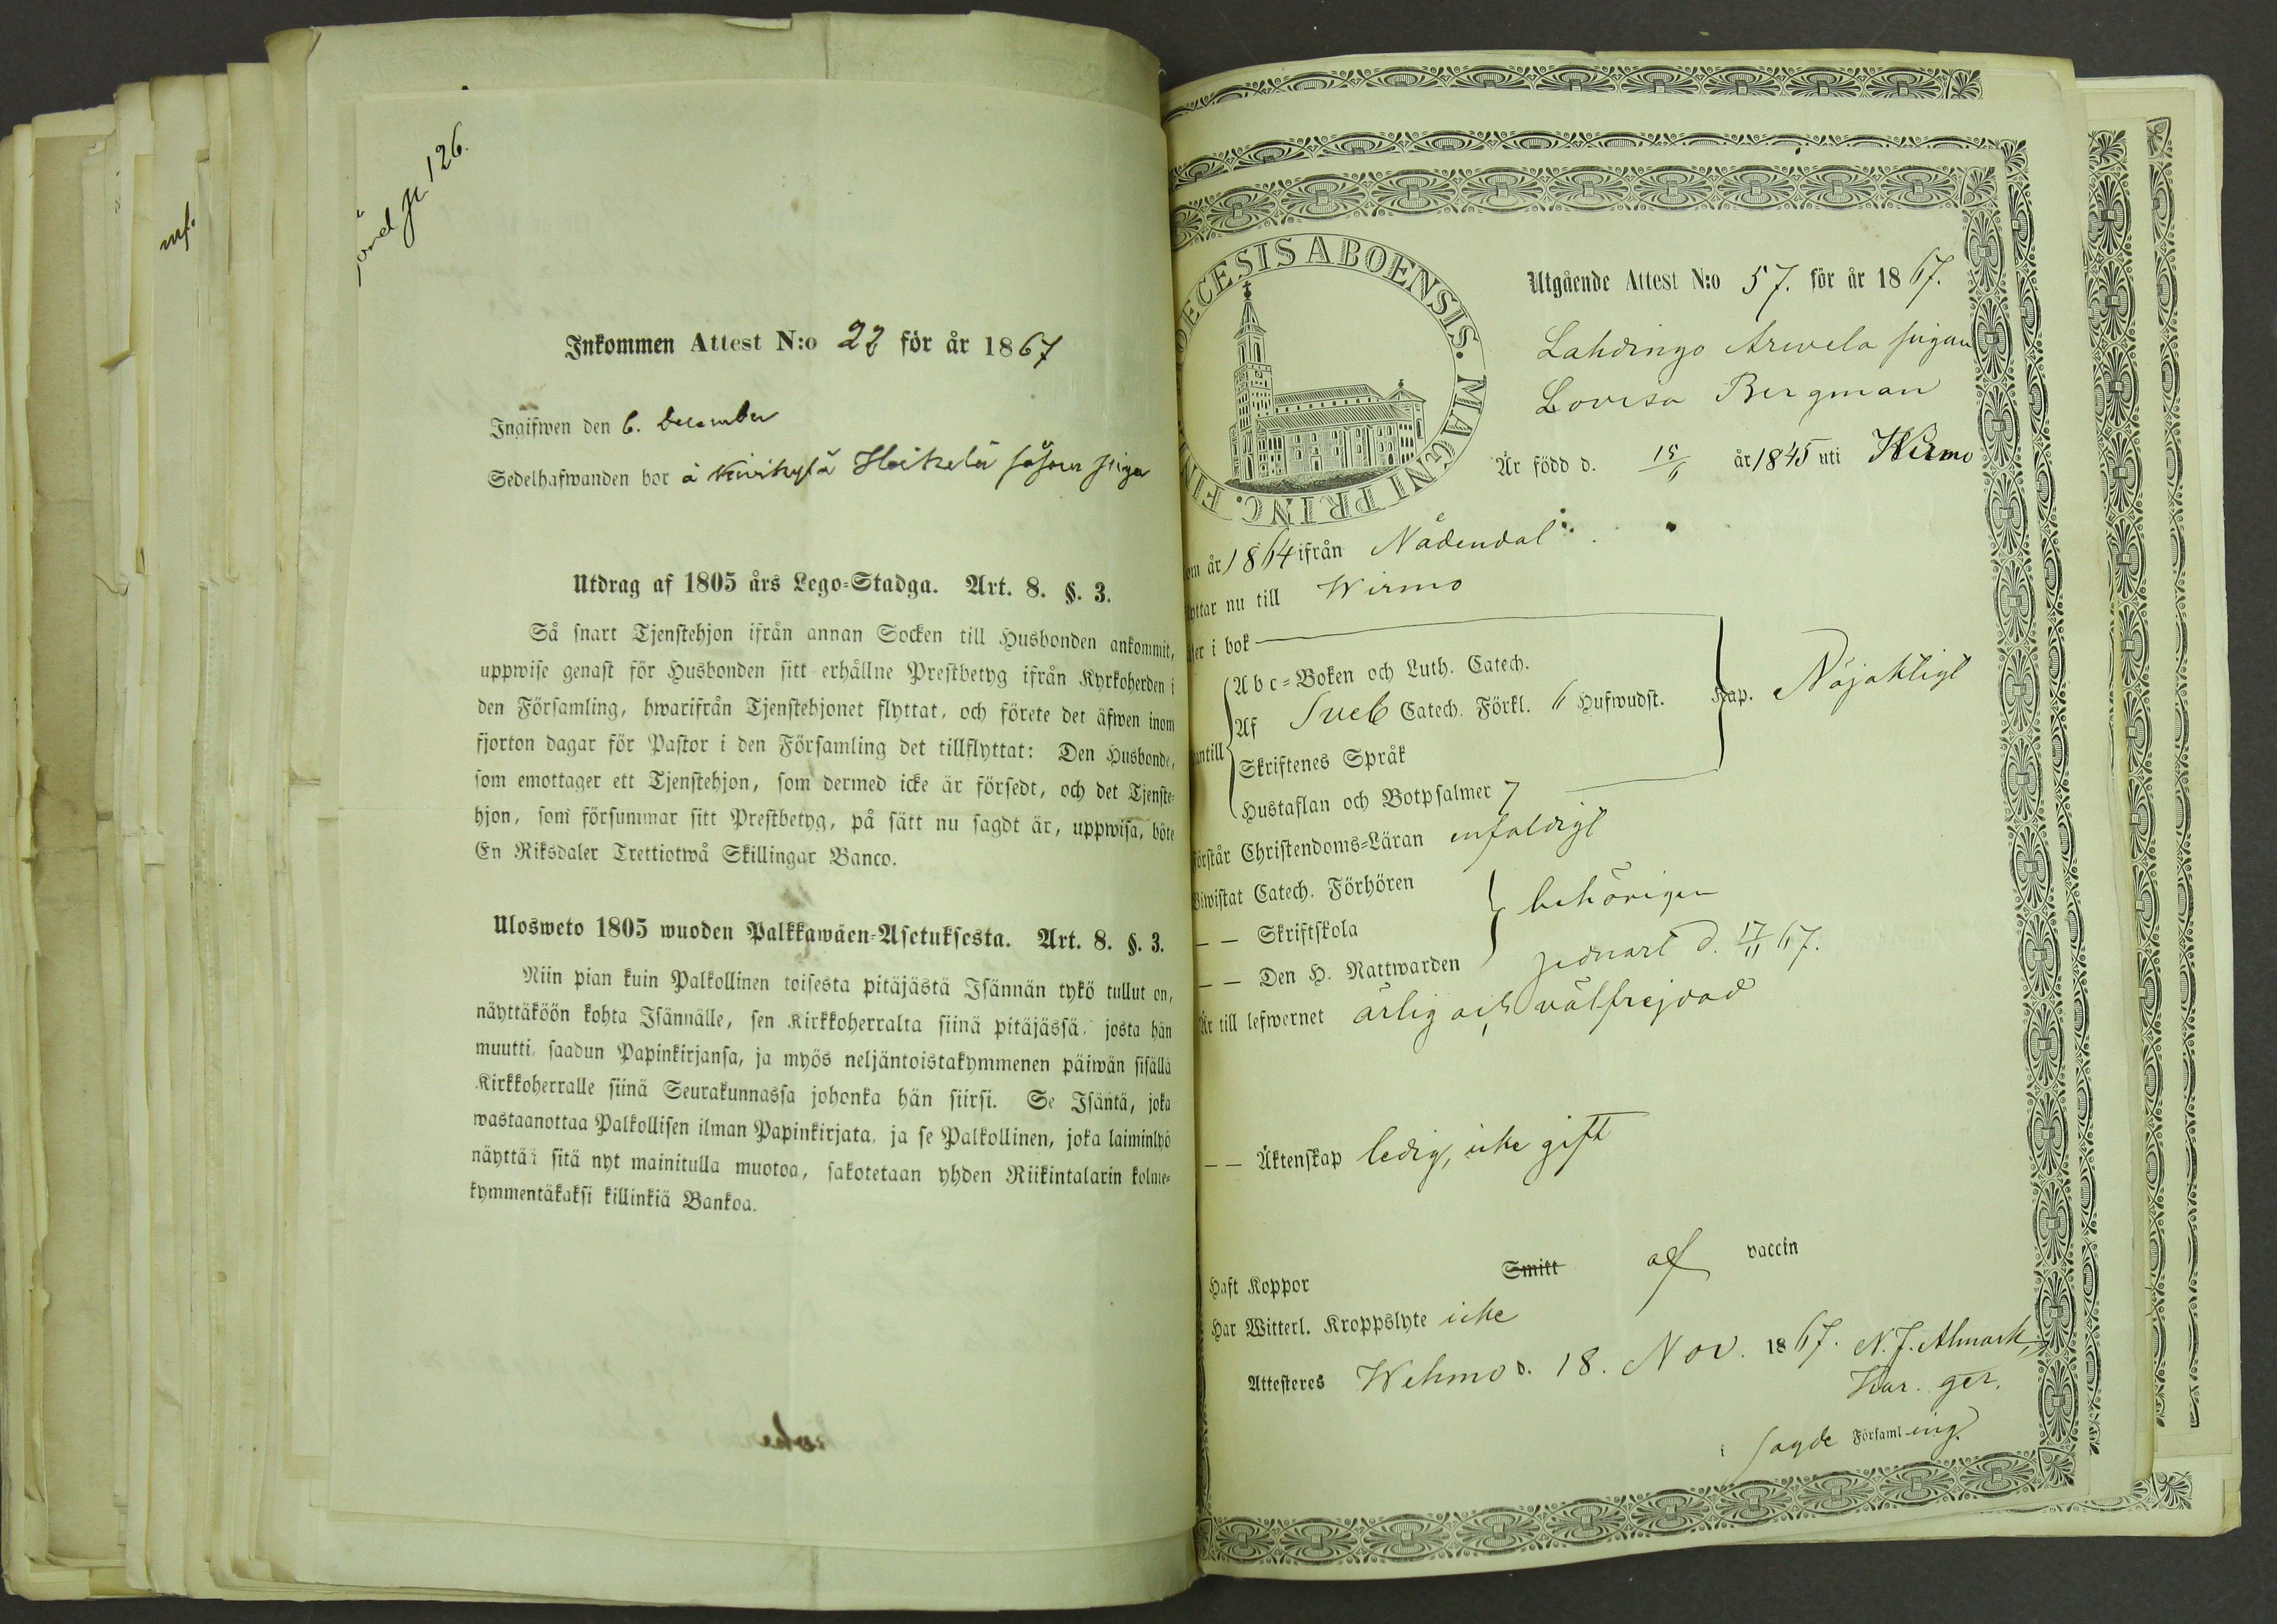 126.
Inkommen Attest N:o 22 för år 1867
Ingifwen den 6. December
Sedelhafwanden bor å Kivikylä Heikelä såsom piga
Utdrag af 1805 års Lego-Stadga. Art. 8. §. 3.
Så snart Tjenstehjon ifrån annan Socken till Husbonden ankommit,
uppwise genast för Husbonden sitt erhållne Prestbetyg ifrån Kyrkoherden i
den Församling, hwarifrån Tjenstehjonet flyttat, och förete det äfwen inom
fjorton dagar för Pastor i den Församling det tillflyttat: Den Husbonde,
som emottager ett Tjenstehjon, som dermed icke är försedt, och det Tjenste-
hjon, som försummar sitt Prestbetyg, på sätt nu sagdt är, uppwisa, böte
En Riksdaler Trettiotwå Skillingar Banco.
Ulosweto 1805 wuoden Palkkawäen-Asetuksesta. Art. 8. §. 3.
Niin pian kuin Palkollinen toisesta pitäjästä Isännän tykö tullut on,
näyttäköön kohta Isännälle, sen Kirkkoherralta siinä pitäjässä, josta hän
muutti, saadun Papinkirjansa, ja myös neljäntoistakymmenen päiwän sisällä
Kirkkoherralle siinä Seurakunnassa johonka hän siirsi. Se Isäntä, joka
wastaanottaa Palkollisen ilman Papinkirjata, ja se Palkollinen, joka laiminlyö
näyttää sitä nyt mainitulla muotoa, sakotetaan yhden Riikintalarin kolme-
kymmentäkaksi killinkiä Bankoa.
DECESIS ABOENSIS. MAGNI PRINC. FIN
Utgående Attest N:o 57. för år 1867.
Lahdingo Arwela pigan
Lovisa Bergman
Är född d. 15/6 år 1845 uti Wirmo
om år 1864 ifrån Nådendal
yttar nu till Wirmo
äser i bok
Abc-Boken och Luth. Catech.
Af Sveb Catech. Förkl. 6 Hufwudst. Kap. Nöjaktigt
untill
Skriftenes Språk
Hustaflan och Botpsalmer 7
Förstår Christendoms-Läran enfaldigt
Biwistat Catech. Förhören
— — Skriftskola behörigen
— — Den H. Nattwarden sednast d. 17/11 67.
Är till lefwernet ärlig och välfrejdad
— — Äktenskap ledig, icke gift
Haft Koppor Smitt af vaccin
Har Witterl. Kroppslyte icke
Attesteres Wehmo d. 18. Nov. 1867. N. J. Almark,
i sagde Församling.